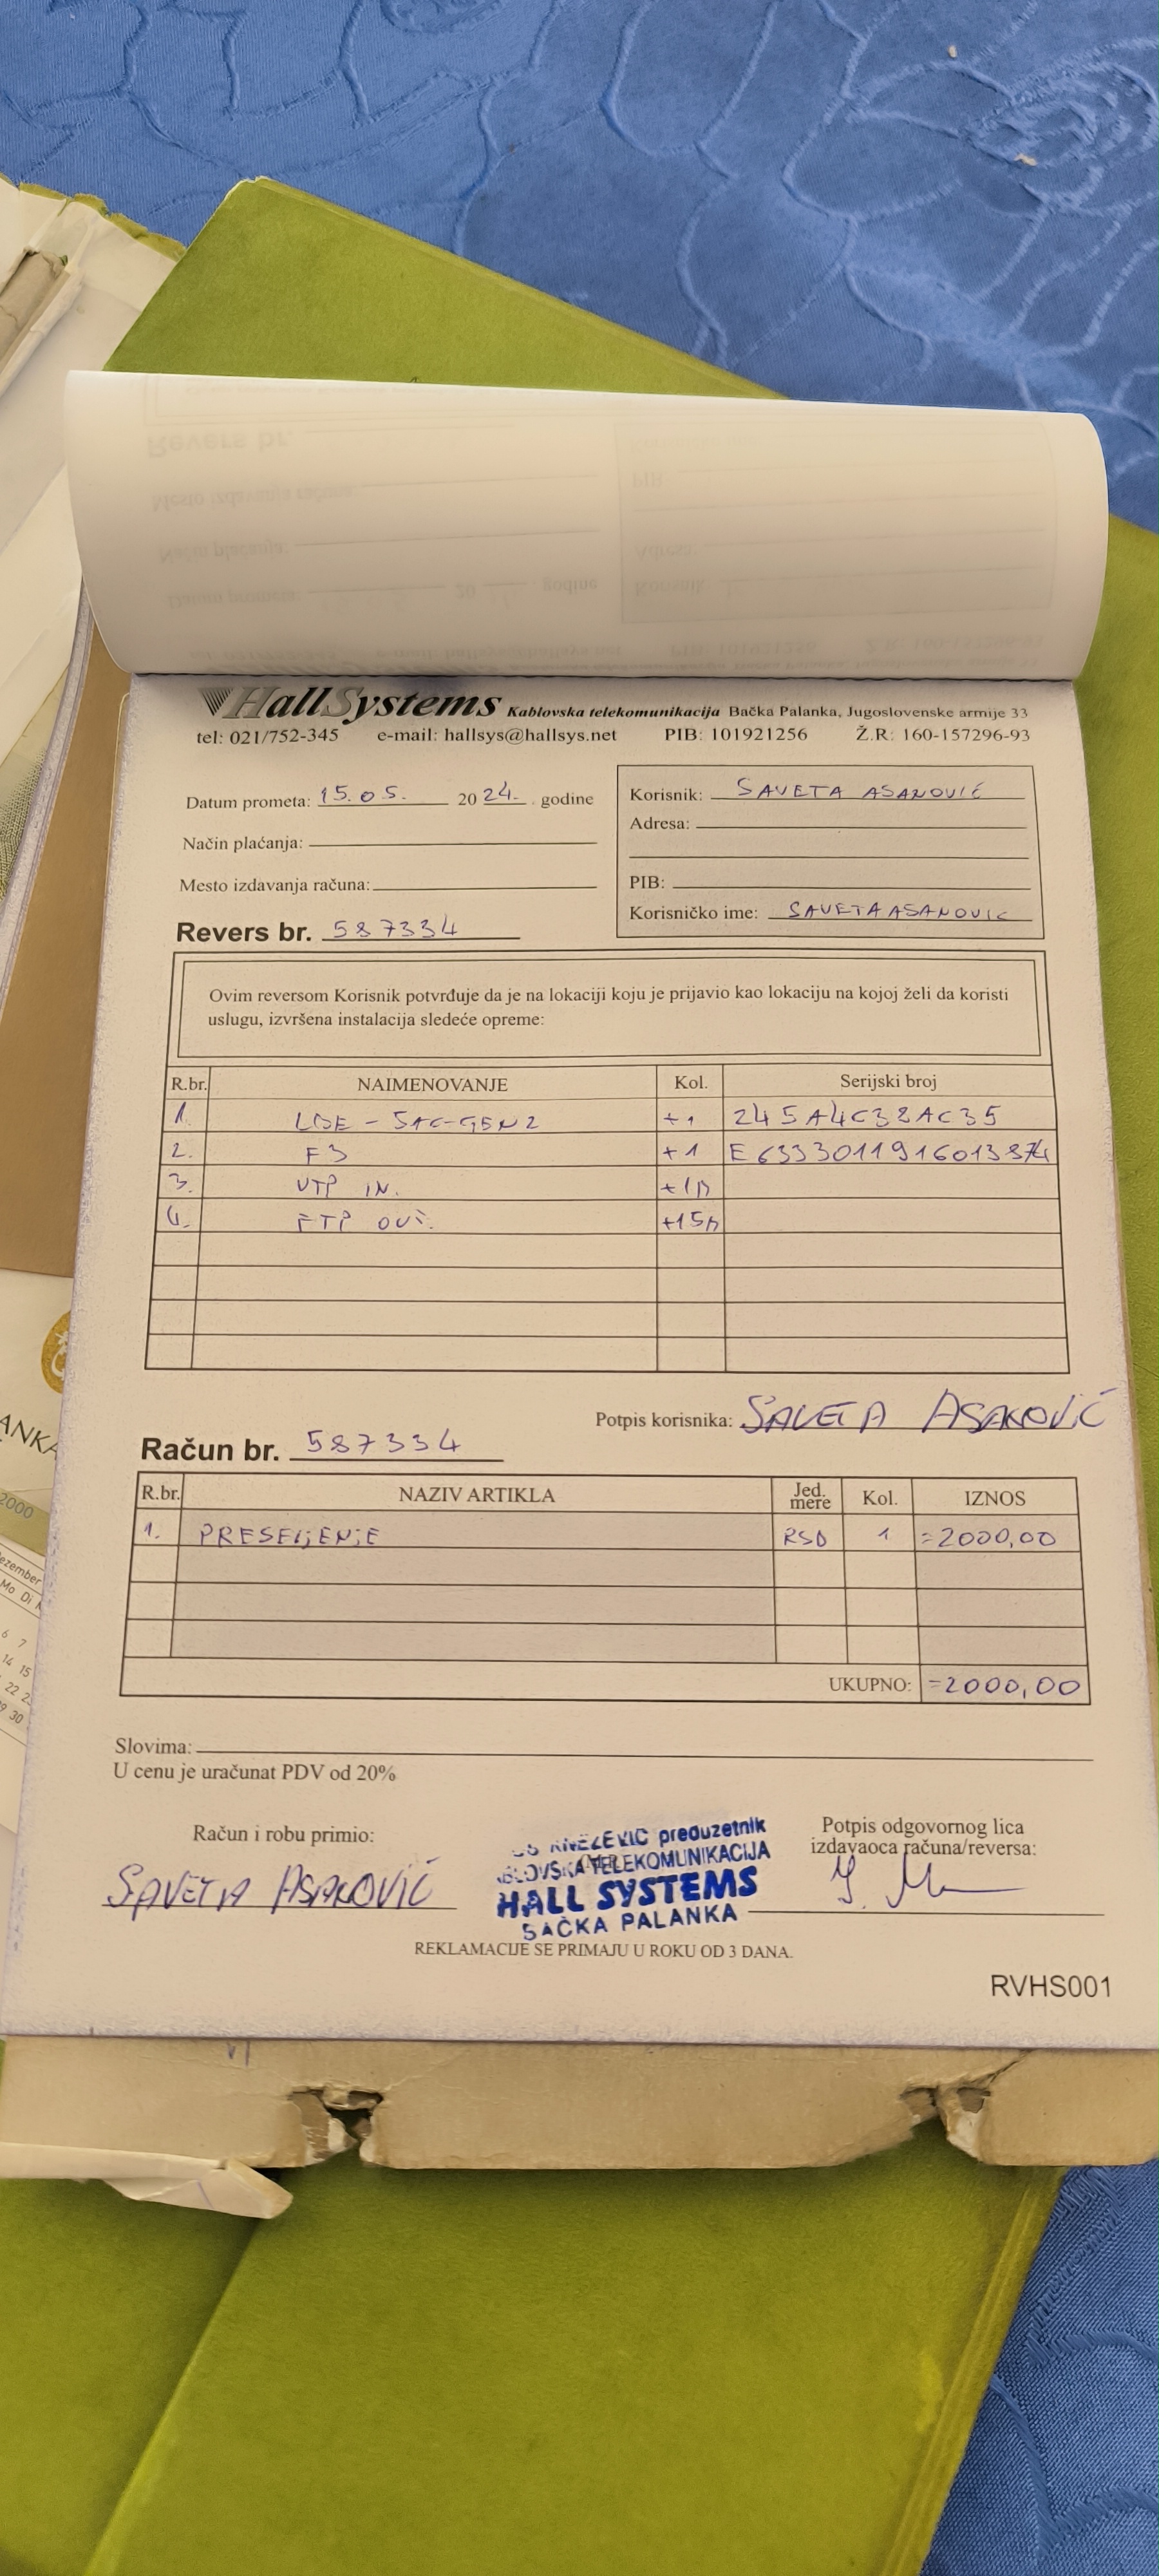 HallSystems Kablovska telekomunikacija Bačka Palanka, Jugoslovenske armije 33
tel: 021/752-345 e-mail: hallsys@hallsys.net PIB: 101921256 Ž.R: 160-157296-93
Datum prometa: 15.05. 2024. godine
Način plaćanja:
Mesto izdavanja računa:
Revers br. 587334
Korisnik: SAVETA ASANOVIĆ
Adresa:
PIB:
Korisničko ime: SAVETAASANOVIC
Ovim reversom Korisnik potvrđuje da je na lokaciji koju je prijavio kao lokaciju na kojoj želi da koristi
uslugu, izvršena instalacija sledeće opreme:
R.br. NAIMENOVANJE Kol. Serijski broj
1. +1 245A4C38AC35
2. F3 +1
3. UTP IN.
4. FTP OUT.
Potpis korisnika: SAVETA ASANOVIĆ
Račun br. 587334
R.br. NAZIV ARTIKLA Jed. mere Kol. IZNOS
1. PRESELJENJE RSD 1 =2000,00
UKUPNO: =2000,00
Slovima:
U cenu je uračunat PDV od 20%
Račun i robu primio:
SAVETA ASANOVIĆ
KNEŽEVIĆ preduzetnik
TELEKOMUNIKACIJA
HALL SYSTEMS
BAČKA PALANKA
Potpis odgovornog lica
izdavaoca računa/reversa:
REKLAMACIJE SE PRIMAJU U ROKU OD 3 DANA.
RVHS001